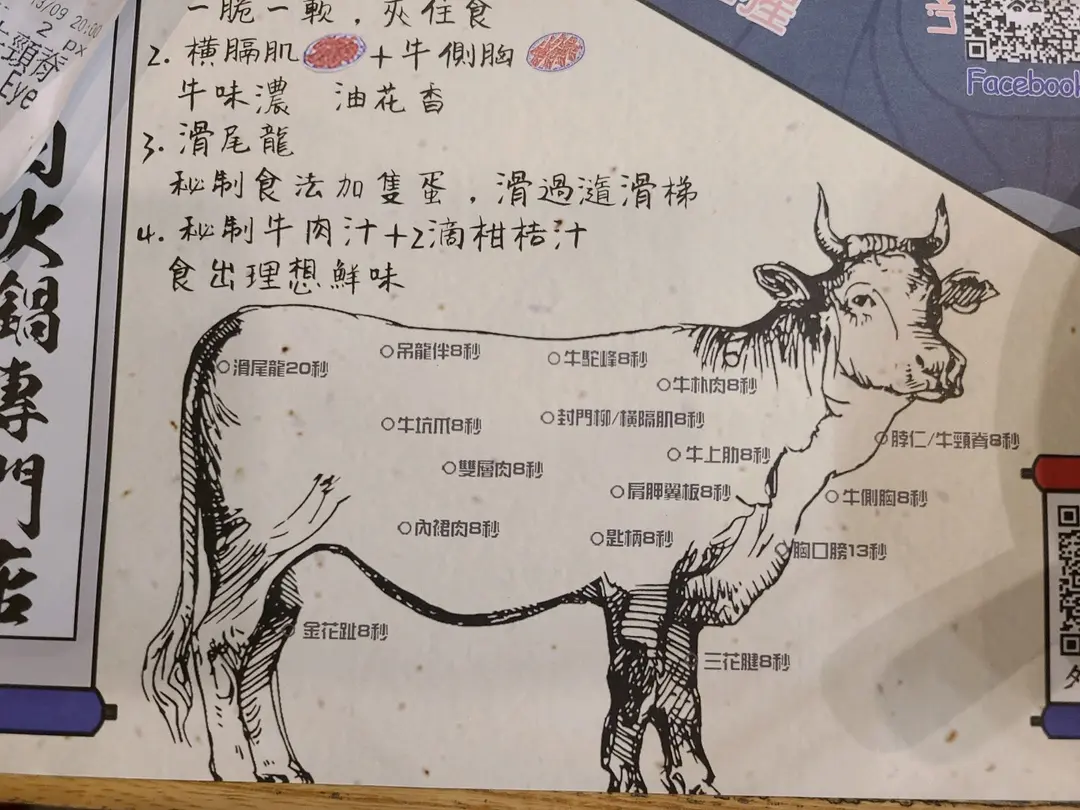 一脆一軟，夾住食
2. 橫膈肌 + 牛側胸
牛味濃 油花香
3. 滑尾龍
秘制食法加隻蛋，滑過瀡滑梯
4. 秘制牛肉汁+2滴柑桔汁
食出理想鮮味
滑尾龍20秒
吊龍伴8秒
牛駝峰8秒
牛朴肉8秒
牛坑爪8秒
封門柳/橫隔肌8秒
脖仁/牛頸脊8秒
雙層肉8秒
牛上肋8秒
肩胛翼板8秒
牛側胸8秒
內裙肉8秒
匙柄8秒
胸口膀13秒
金花趾8秒
三花腱8秒
火鍋專門店
Facebook
/09 20:00
2 px
頸脊
Eye